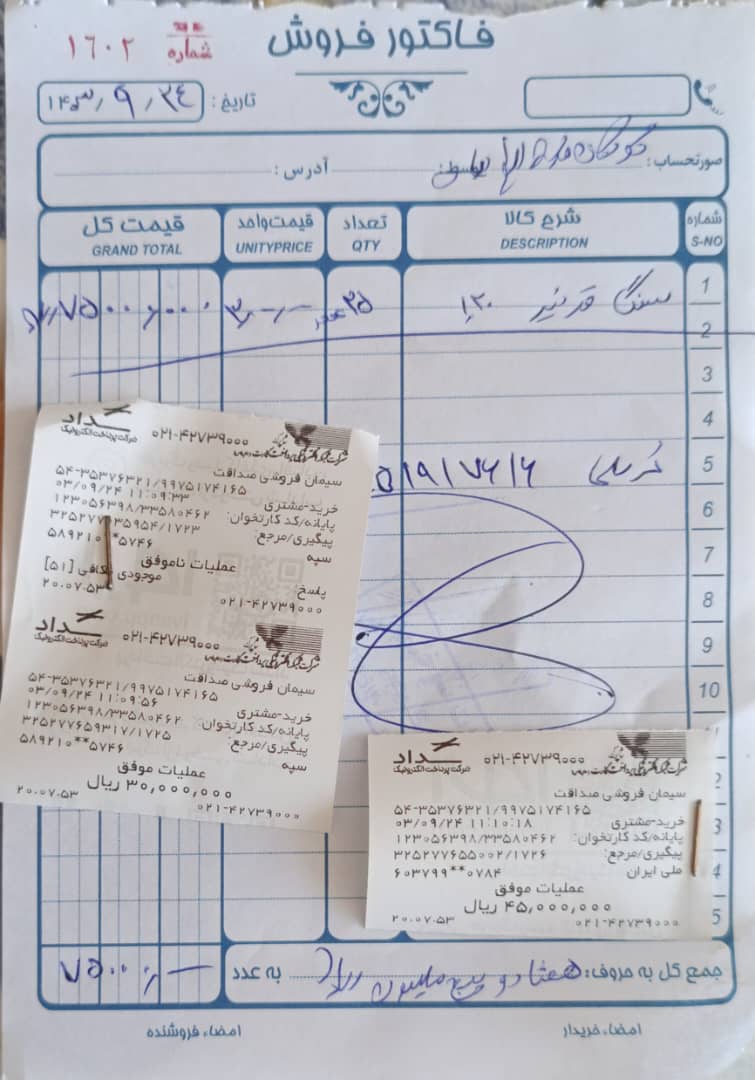 فاکتور فروش
شماره ۱۶۰۲
تاریخ: ۱۴۰۳/۹/۲۴
صورتحساب:
آدرس:
شماره S-NO
شرح کالا DESCRIPTION
تعداد QTY
قیمت واحد UNITYPRICE
قیمت کل GRAND TOTAL
1
سنگ قرنیز ۲۵ ۷۵۰۰۰٫۰۰۰
2
3
4
5
6
7
8
9
10
سداد ۰۲۱-۴۲۷۳۹۰۰۰
شرکت پرداخت الکترونیک
سیمان فروشی صداقت
۵۴-۳۵۳۷۶۳۲۱/۹۹۷۵۱۷۴۱۶۵
خرید-مشتری ۰۳/۰۹/۲۴ ۱۱:۰۹:۳۳
پایانه/کد کارتخوان: ۱۲۳۰۵۶۳۹۸/۳۳۵۸۰۴۶۲
پیگیری/مرجع: /۱۷۲۳
سپه ۵۸۹۲۱۰**۵۷۴۶
عملیات ناموفق
پاسخ: موجودی [۵۱]
۲۰.۰۷.۵۳ ۰۲۱-۴۲۷۳۹۰۰۰
سداد ۰۲۱-۴۲۷۳۹۰۰۰
شرکت پرداخت الکترونیک
سیمان فروشی صداقت
۵۴-۳۵۳۷۶۳۲۱/۹۹۷۵۱۷۴۱۶۵
خرید-مشتری ۰۳/۰۹/۲۴ ۱۱:۰۹:۵۶
پایانه/کد کارتخوان: ۱۲۳۰۵۶۳۹۸/۳۳۵۸۰۴۶۲
پیگیری/مرجع: ۳۲۵۲۷۷۶۵۹۳۱۷/۱۷۲۵
سپه ۵۸۹۲۱۰**۵۷۴۶
عملیات موفق
۳۰,۰۰۰,۰۰۰ ریال
۲۰.۰۷.۵۳ ۰۲۱-۴۲۷۳۹۰۰۰
سداد ۰۲۱-۴۲۷۳۹۰۰۰
شرکت پرداخت الکترونیک
سیمان فروشی صداقت
۵۴-۳۵۳۷۶۳۲۱/۹۹۷۵۱۷۴۱۶۵
خرید-مشتری ۰۳/۰۹/۲۴ ۱۱:۱۰:۱۸
پایانه/کد کارتخوان: ۱۲۳۰۵۶۳۹۸/۳۳۵۸۰۴۶۲
پیگیری/مرجع: ۳۲۵۲۷۷۶۵۵۰۰۲/۱۷۲۶
ملی ایران ۶۰۳۷۹۹**۰۷۸۴
عملیات موفق
۴۵,۰۰۰,۰۰۰ ریال
۲۰.۰۷.۵۳ ۰۲۱-۴۲۷۳۹۰۰۰
2
3
4
5
جمع کل به حروف: هفتاد و پنج ملیون ریال به عدد ۷۵۰۰۰٫—
امضاء خریدار
امضاء فروشنده